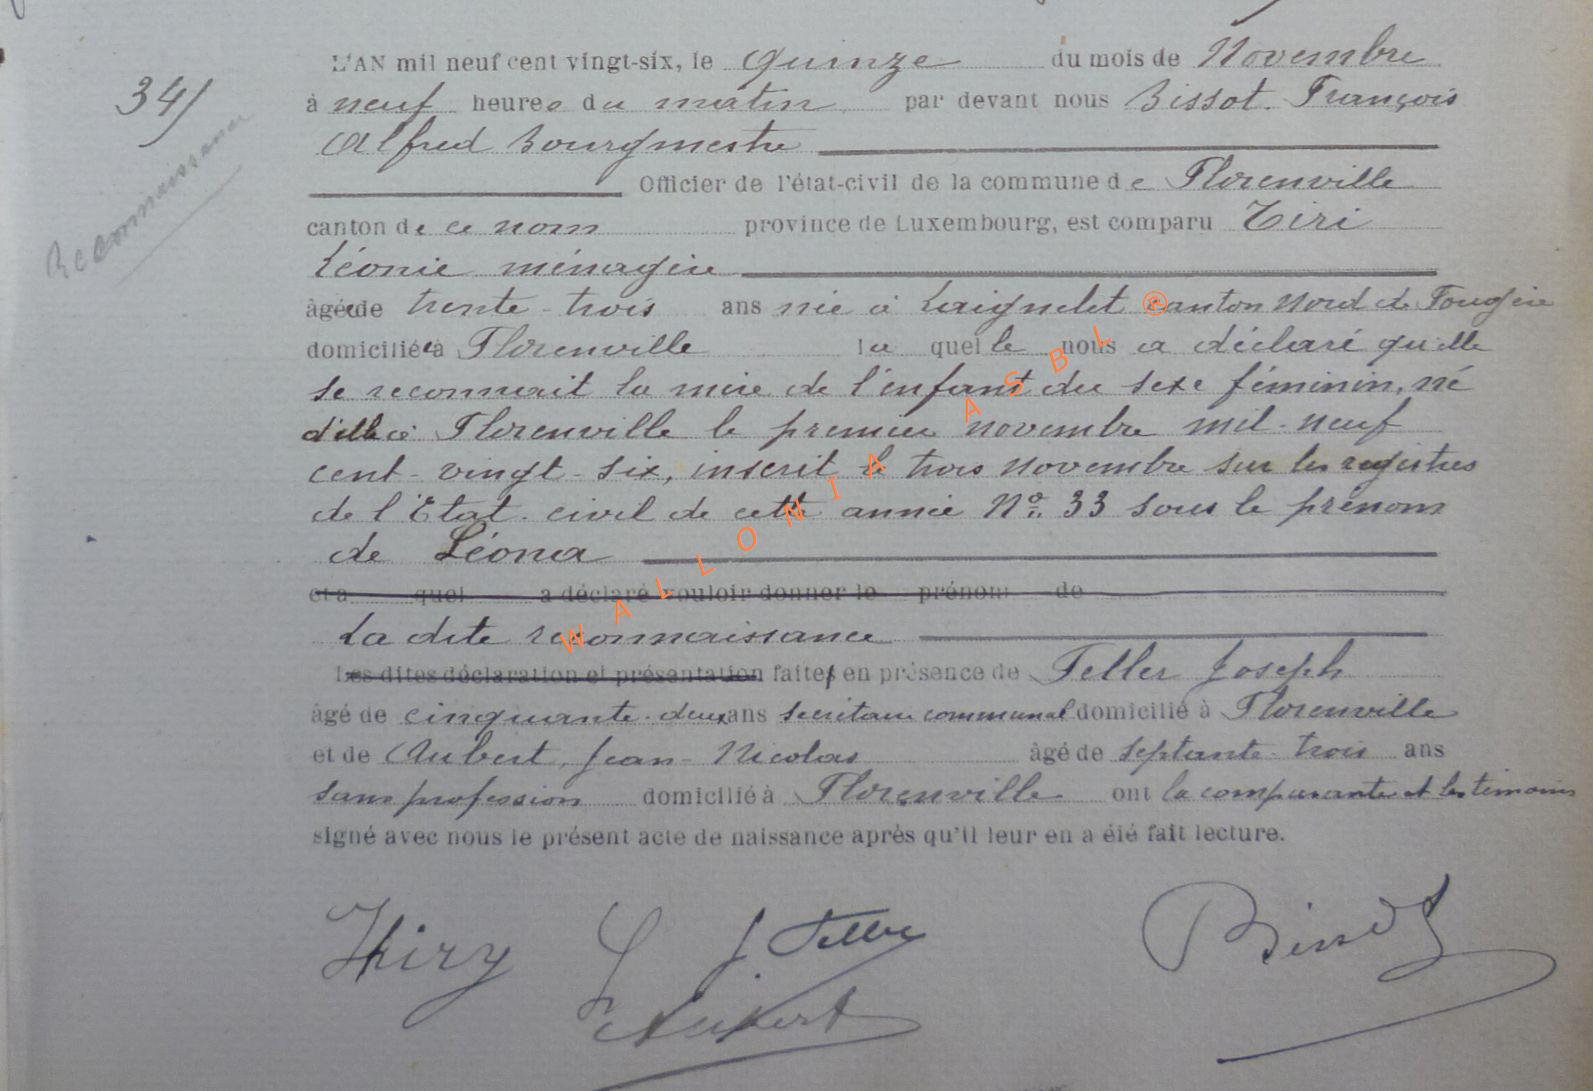 34/
Reconnaissance
L'AN mil neuf cent vingt-six, le quinze du mois de Novembre
à neuf heures du matin par devant nous Bissot François
Alfred Bourgmestre
Officier de l'état-civil de la commune de Florenville
canton de ce nom province de Luxembourg, est comparu Tiri
Léonie ménagère
âgée de trente-trois ans née à Laignelet canton Nord de Fougère
domiciliée à Florenville laquelle nous a déclaré qu'elle
se reconnait la mère de l'enfant du sexe féminin, né
d'elle à Florenville le premier novembre mil-neuf
cent-vingt-six, inscrit le trois novembre sur les registres
de l'Etat-civil de cette année No. 33 sous le prénom
de Léona
et a quel a déclaré vouloir donner le prénom de
La dite reconnaissance
Les dites déclaration et présentation faites en présence de Feller Joseph
âgé de cinquante-deux ans secrétaire communal domicilié à Florenville
et de Aubert, Jean-Nicolas âgé de septante-trois ans
sans profession domicilié à Florenville ont la comparante et les témoins
signé avec nous le présent acte de naissance après qu'il leur en a été fait lecture.
Thiry J. Feller Bissot
Aubert
WALLONIA ASBL ®